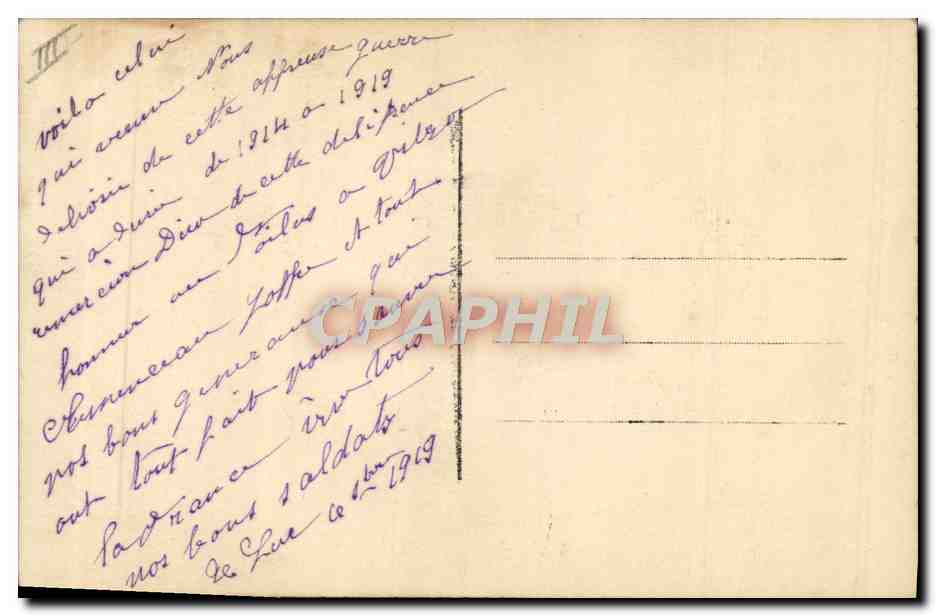 III
voila celui
qui vient Nous
de cette affreuse guerre
qui a durer de 1914 a 1919
remercion Dieu de cette delifrance
honneur au Poilus a
Clemenceau Joffre et tout
nos bons generaux qui
ont tout fait pour sauver
la France vive tous
nos bons saldats
le 1919
CPAPHIL